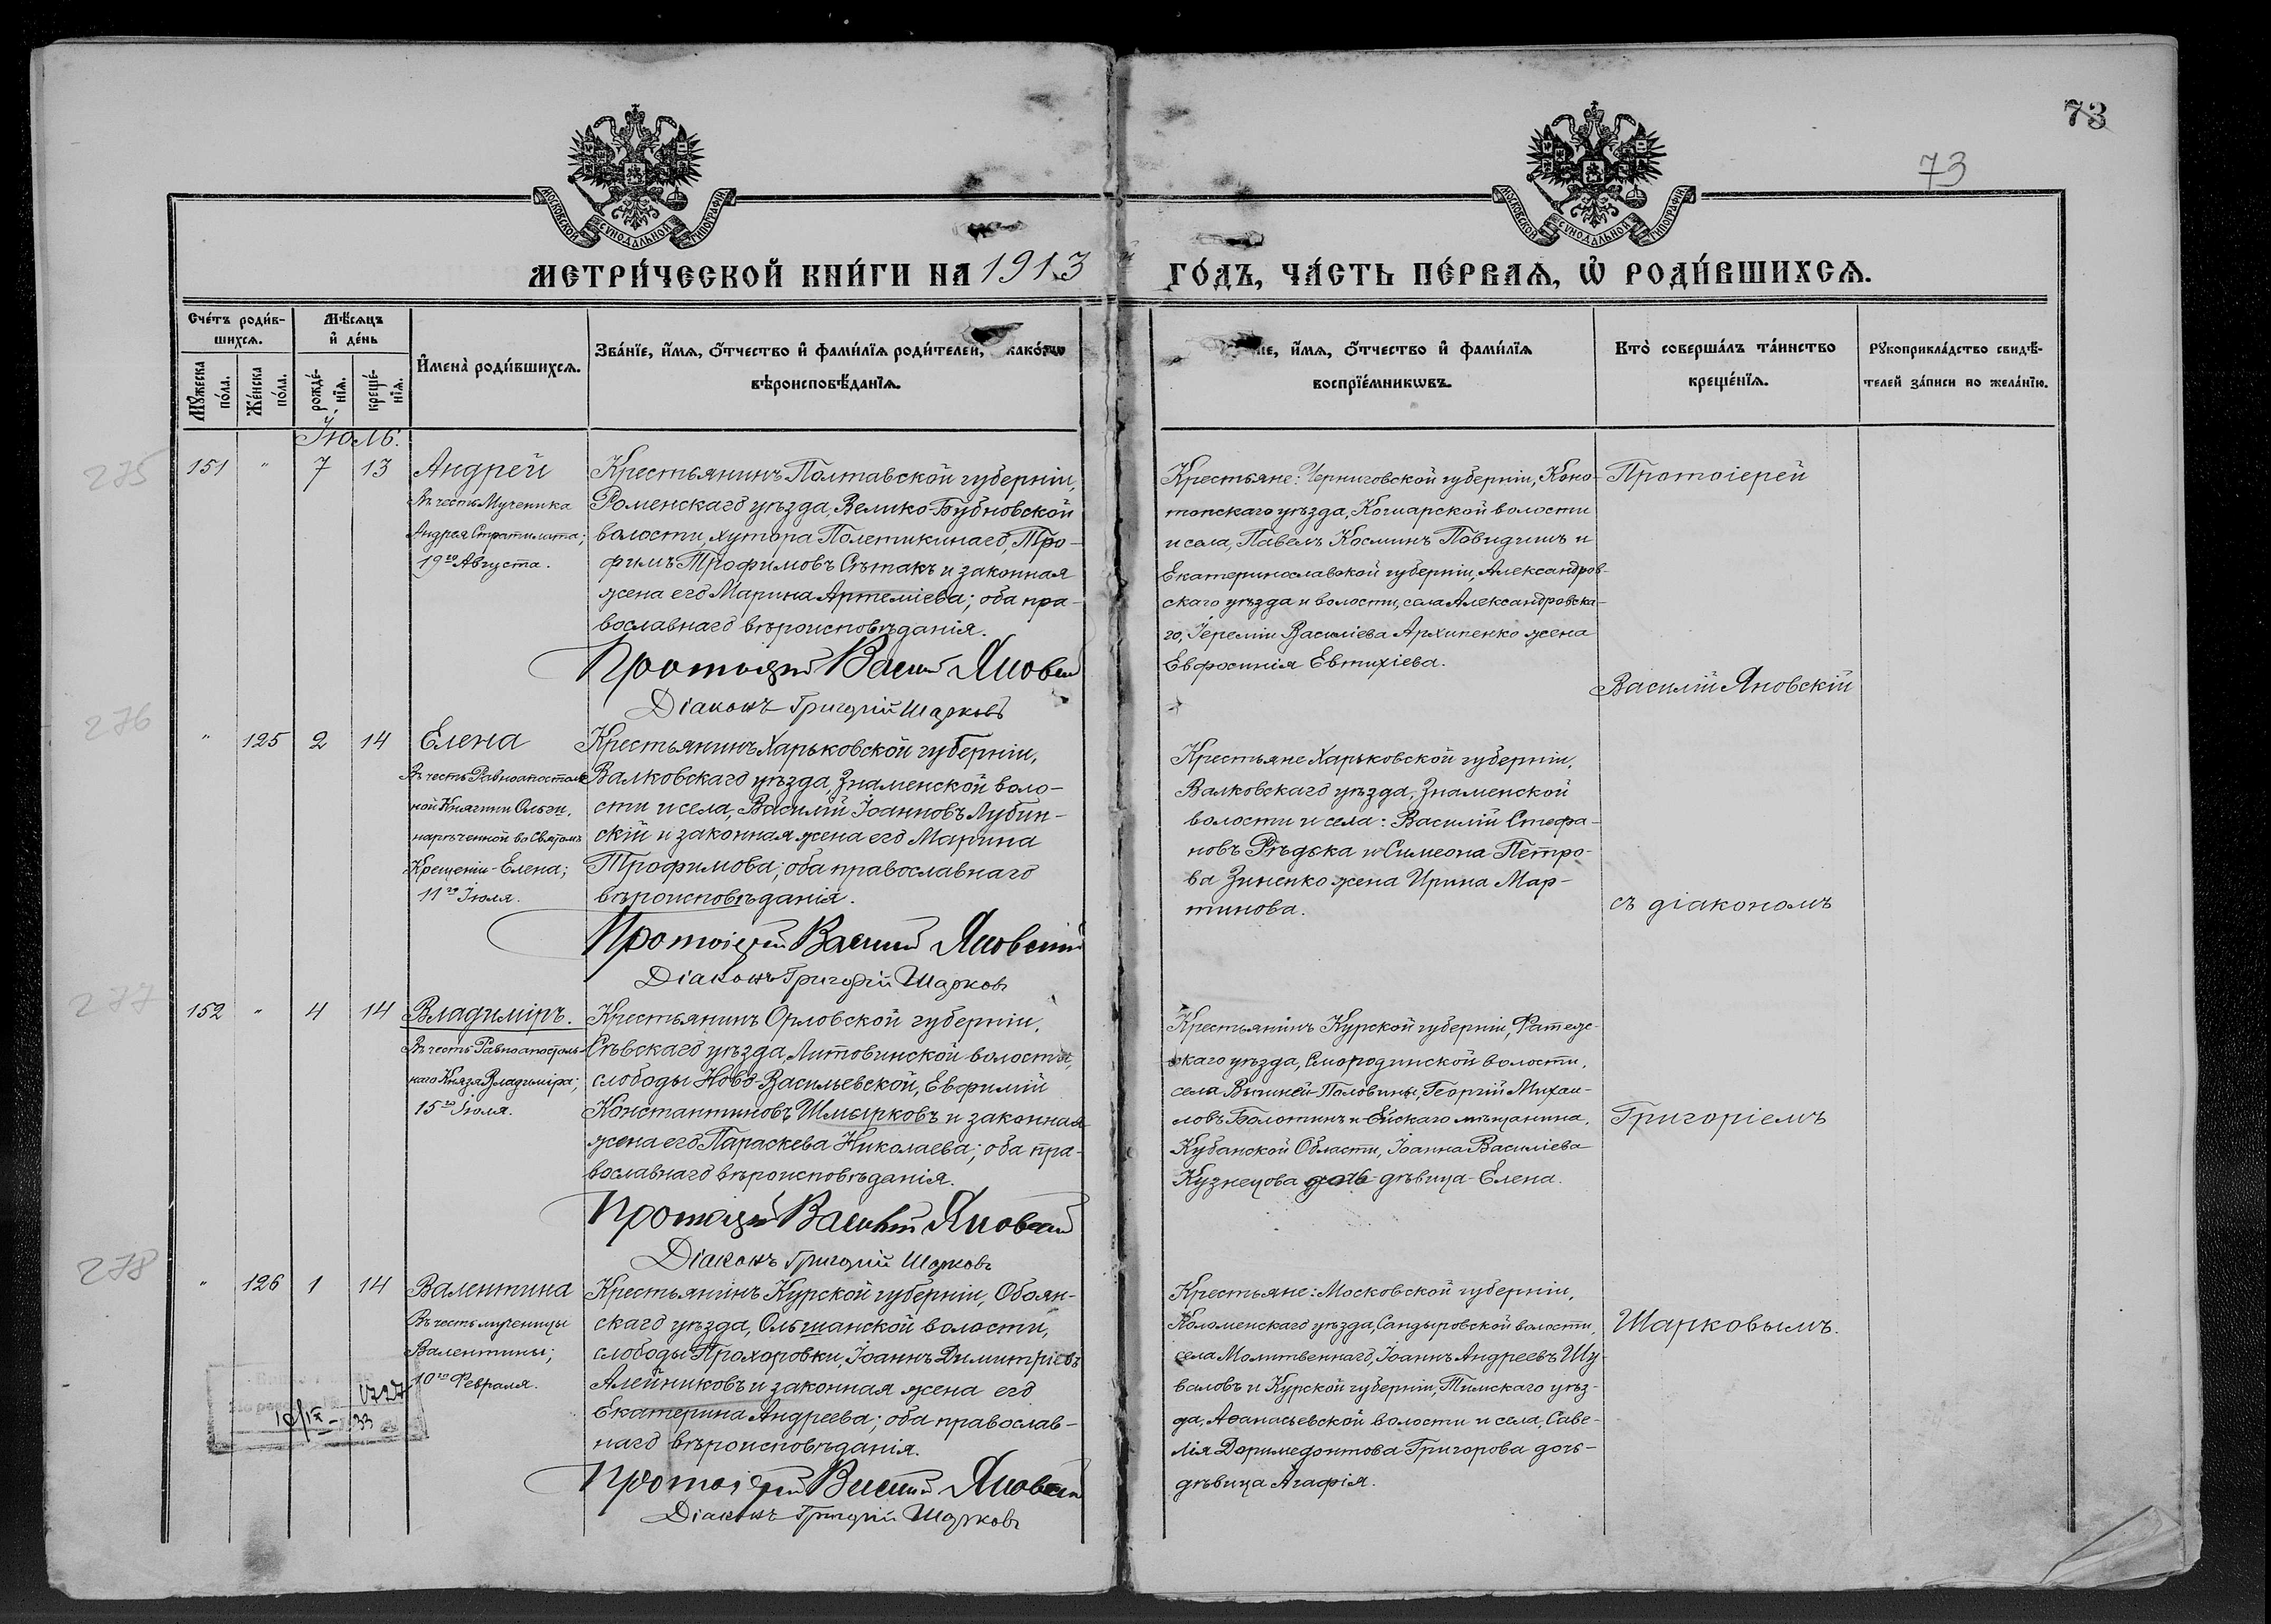 73
73
МОСКОВСКОЙ СѴНОДАЛЬНОЙ ТИПОГРАФІИ
МОСКОВСКОЙ СѴНОДАЛЬНОЙ ТИПОГРАФІИ
МЕТРИ́ЧЕСКОЙ КНИ́ГИ НА 1913 й ГО́ДЪ, ЧА́СТЬ ПЕ́РВАѦ, Ѽ РОДИ́ВШИХСѦ.
Сче́тъ роди́в-
шихсѧ.
Мꙋ́жеска по́ла.
Же́нска по́ла.
Мѣ́сѧцъ
и҆ де́нь
рожде́-нїѧ.
креще́-нїѧ.
И҆мена̀ роди́вшихсѧ.
Зва́нїе, и҆́мѧ, о҆́тчество и҆ фами́лїѧ роди́телей, како́гѡ
вѣроисповѣ́данїѧ.
и҆́мѧ, о҆́тчество и҆ фами́лїѧ
воспрїе́мникѡвъ.
Кто̀ соверша́лъ та́инство
креще́нїѧ.
Рꙋкоприкла́дство свидѣ́-
телей за́писи по жела́нїю.
Іюль.
275
151 " 7 13
Андрей
Въ честь Мученика
Андрея Стратилата;
19го Августа.
Крестьянинъ Полтавской губерніи,
Роменскаго уѣзда, Велико-Бубновской
волости, хутора Полетикинаго, Тро-
фимъ Трофимовъ Сѣтакъ и законная
жена его Марина Артеміева; оба пра-
вославнаго вѣроисповѣданія.
Протоіерей Василій Яновскій
Діаконъ Григорій Шарковъ
Крестьяне: Черниговской губерніи, Коно-
топскаго уѣзда, Кошарской волости
и села, Павелъ Косминъ Повидишъ и
Екатеринославской губерніи, Александров-
скаго уѣзда и волости, села Александровска-
го, Іереміи Василіева Архипенко жена
Евфросинія Евтихіева.
Протоіерей
Василій Яновскій
276
" 125 2 14
Елена
Въ честь Равноапостоль
ной Княгини Ольги,
нареченной во Святомъ
Крещеніи - Елена;
11го Іюля.
Крестьянинъ Харьковской губерніи,
Валковскаго уѣзда, Знаменской воло-
сти и села, Василій Іоанновъ Лубин-
скій и законная жена его Марина
Трофимова; оба православнаго
вѣроисповѣданія.
Протоіерей Василій Яновскій
Діаконъ Григорій Шарковъ
Крестьяне Харьковской губерніи,
Валковскаго уѣзда, Знаменской
волости и села: Василій Стефа-
новъ Рѣдька и Симеона Петро-
ва Зиненко жена Ирина Мар-
тинова.
съ діакономъ
277
152 " 4 14
Владиміръ.
Въ честь Равноапостоль-
наго Князя Владиміра;
15го Іюля.
Крестьянинъ Орловской губерніи,
Сѣвскаго уѣзда, Литовинской волости,
слободы Ново-Васильевской, Евфимій
Константиновъ Шмырковъ и законная
жена его Параскева Николаева; оба пра-
вославнаго вѣроисповѣданія.
Протоіерей Василій Яновскій
Діаконъ Григорій Шарковъ
Крестьянинъ Курской губерніи, Фатеж-
скаго уѣзда, Смородинской волости,
села Половины, Георгій Михаи-
ловъ Болотинъ и Ейскаго мѣщанина,
Кубанской Области, Іоанна Василіева
Кузнецова дочь дѣвица - Елена.
Григоріемъ
278
" 126 1 14
Валентина
Въ честь мученицы
Валентины;
10го Февраля.
Крестьянинъ Курской губерніи, Обоян-
скаго уѣзда, Ольшанской волости,
слободы Прохоровки, Іоаннъ Димитріевъ
Алейниковъ и законная жена его
Екатерина Андреева; оба православ-
наго вѣроисповѣданія.
Протоіерей Василій Яновскій
Діаконъ Григорій Шарковъ
Крестьяне: Московской губерніи,
Коломенскаго уѣзда, Сандыровской волости,
села Молитвеннаго, Іоаннъ Андреевъ Шу-
валовъ и Курской губерніи, Тимскаго уѣз-
да, Аѳанасьевской волости и села, Саве-
лія Доримедонтова Григорова дочь-
дѣвица Агафія.
Шарковымъ.